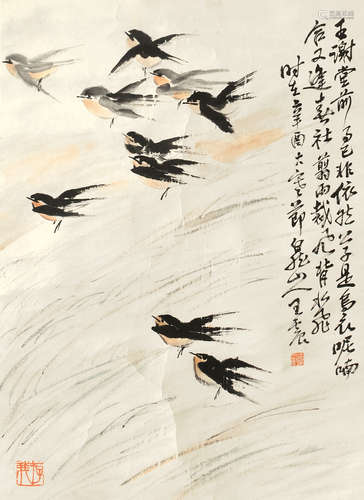 王谢堂前局已非依然公子是乌衣呢喃
合又逢春社剪雨裁风背水飞
时在辛酉大寒节泉山人王震